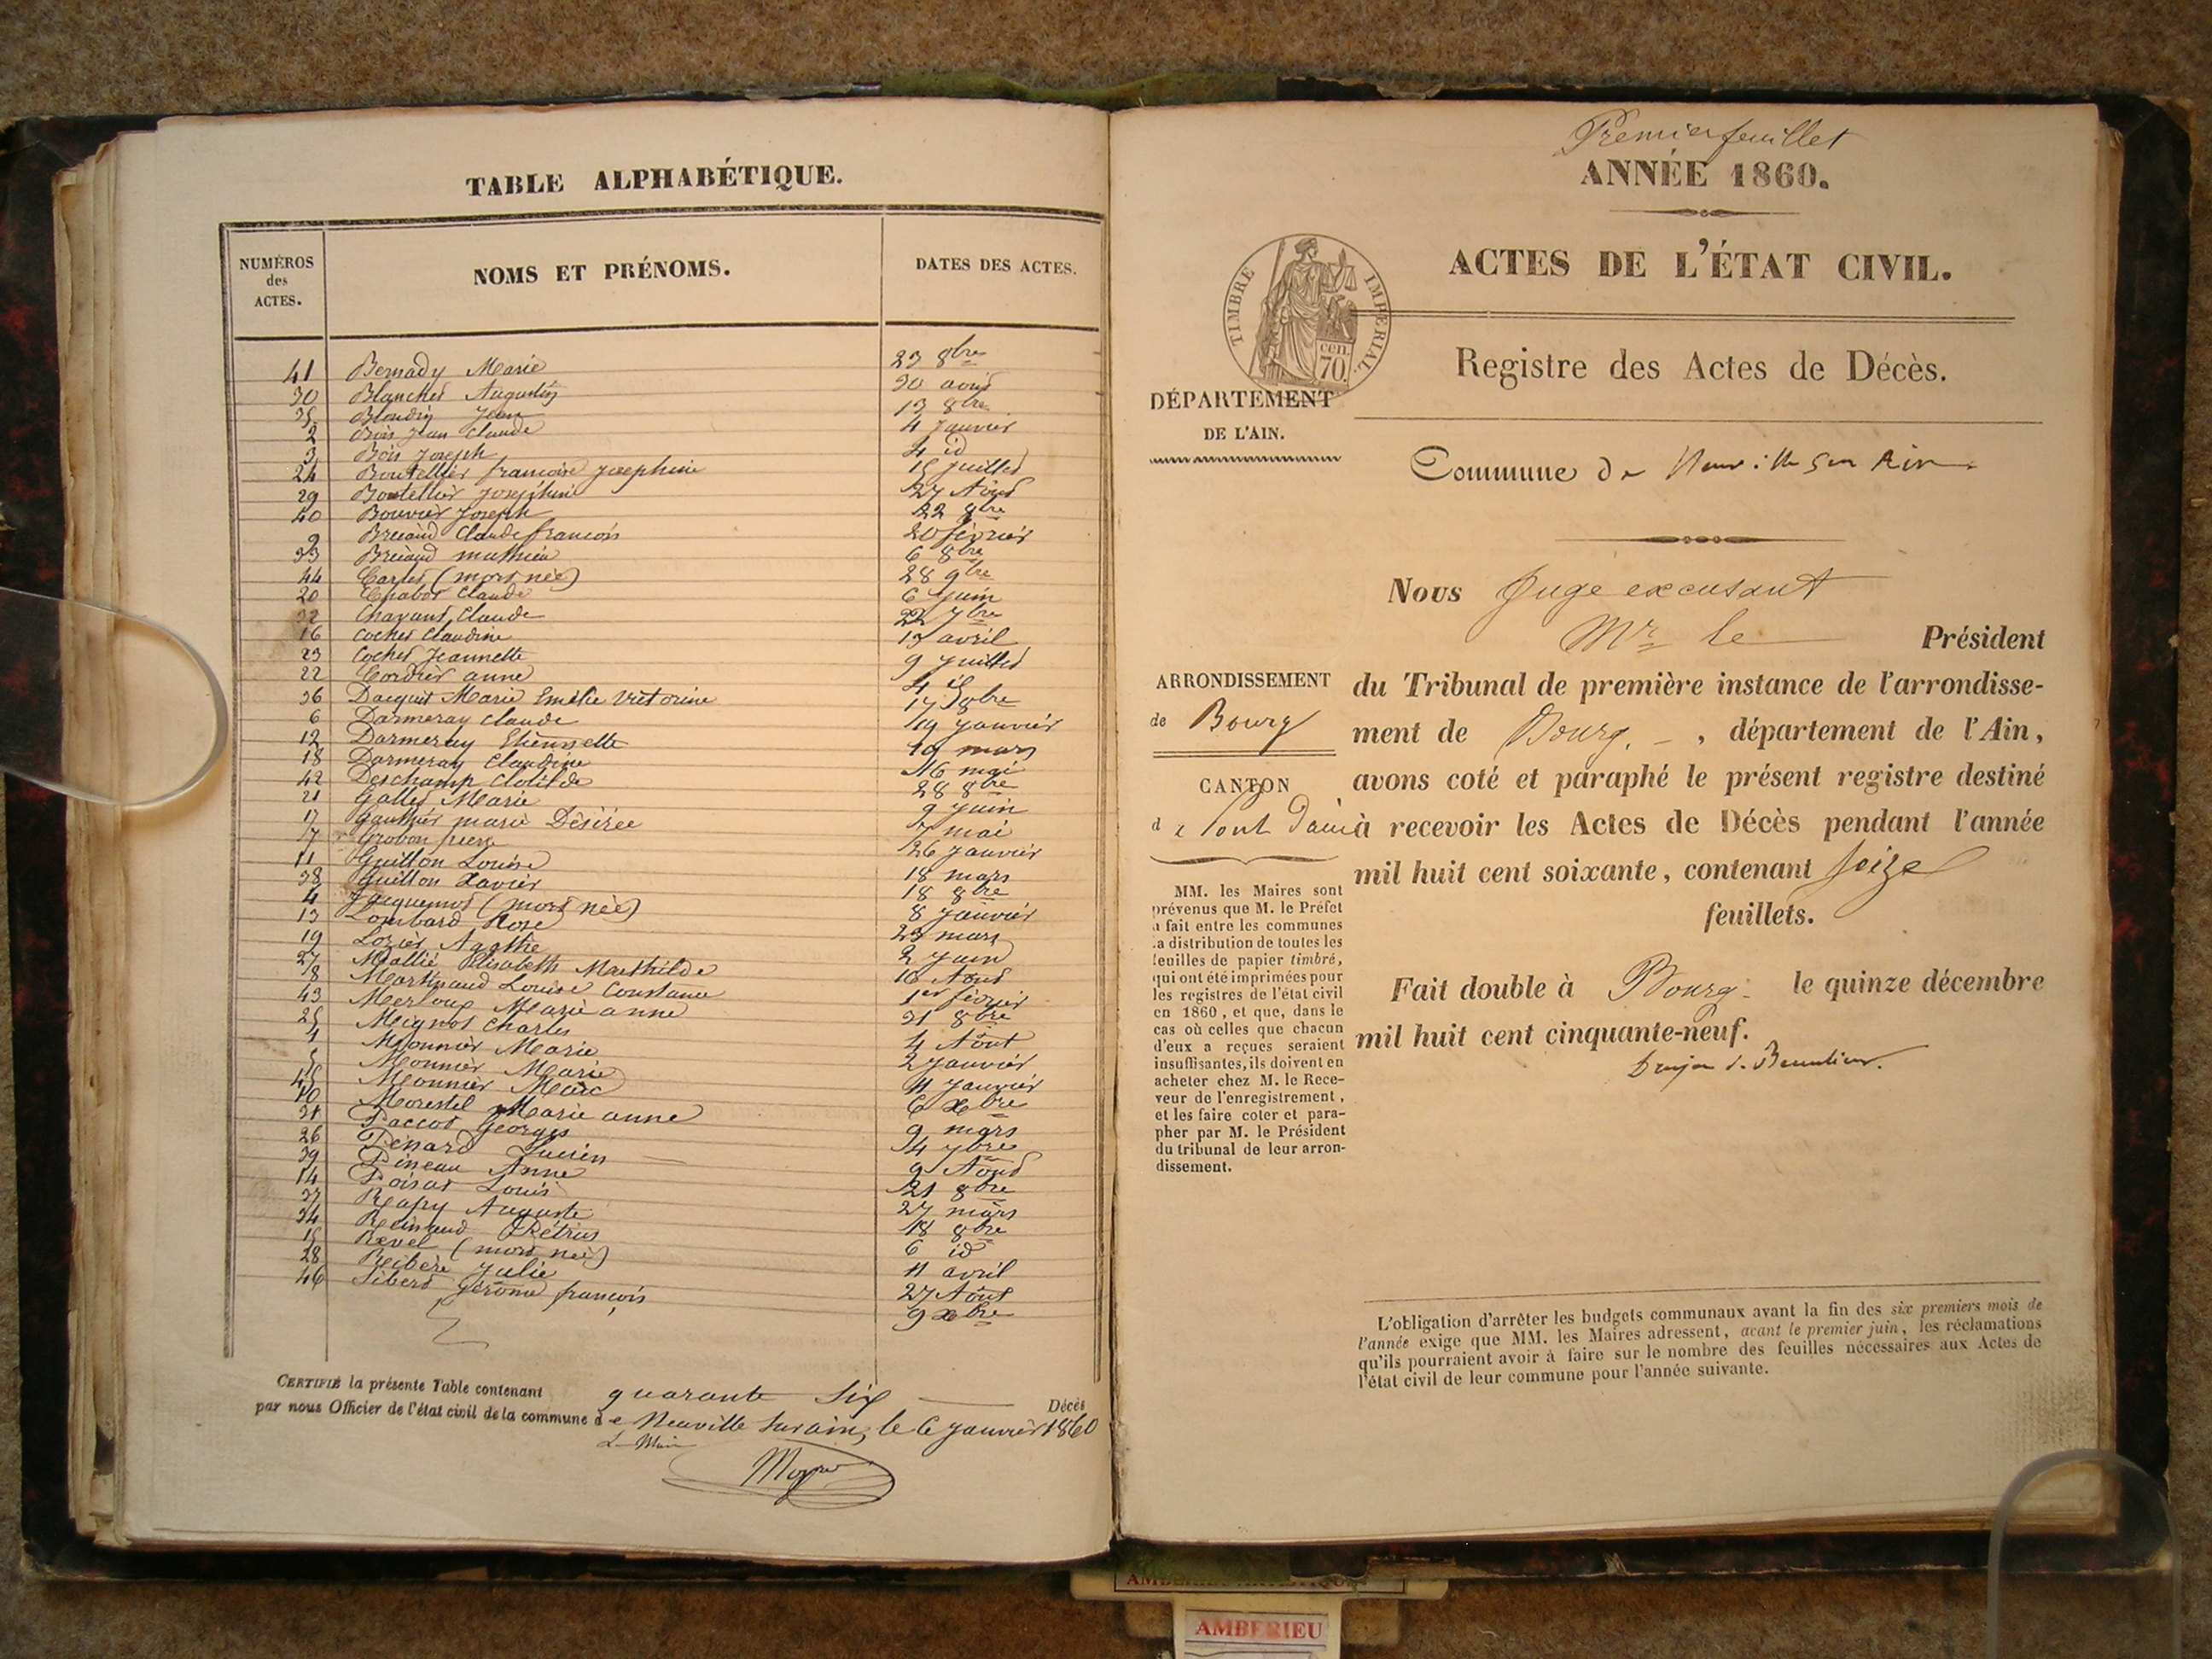 TABLE ALPHABÉTIQUE.
NUMÉROS des ACTES. NOMS ET PRÉNOMS. DATES DES ACTES.
41 Bernady Marie 23 8bre
30 Blanchet Augustin 30 avril
35 Blondin Jean 13 8bre
2 Bois Jean Claude 4 Janvier
3 Bois Joseph 4 id
24 Boutellier francoise Josephine 15 Juillet
29 Boutellier Joséphine 27 Août
40 Bouvier Joseph 22 8bre
9 Breiand Claude francois 20 février
33 Breiand mathieu 6 8bre
44 (mort née) 28 9bre
20 Chabot Claude 6 Juin
32 Chavant Claude 22 7bre
16 Cochet Claudine 13 avril
23 Cochet Jeannette 9 Juillet
22 Cordier anne 4 id
36 Marie Emélie Victorine 17 8bre
6 Darmeray Claude 19 Janvier
12 Darmeray Etiennette 19 mars
18 Darmeray Claudine 16 mai
42 Deschamp Clotilde 28 8bre
21 Gallet Marie 9 Juin
17 Gauthier marie Désirée 7 mai
7 Grobon 26 Janvier
11 Guillon Louise 18 mars
38 Guillon Xavier 18 8bre
4 Jacquemot (mort née) 8 Janvier
13 Lombard Rose 23 mars
19 Lozier Agathe 2 Juin
27 Mallié Elisabeth Mathilde 16 Août
8 Martinaud Louise Constance 1er février
43 Merloup Marie anne 31 8bre
25 Mignot Charles 4 Août
1 Monnier Marie 2 Janvier
5 Monnier Marie 11 Janvier
45 Monnier Marc 6 xbre
10 Morestel Marie anne 9 mars
31 Paccot Georges 14 7bre
26 Penard Lucien 9 Août
39 Pineau Anne 21 8bre
14 Poisat Louis 27 mars
37 Auguste 18 8bre
34 6 id
15 Revel (mort née) 11 avril
28 Ribère Julie 27 Août
46 Sibert Jérôme françois 9 xbre
CERTIFIÉ la présente Table contenant quarante Six Décès
par nous Officier de l'état civil de la commune de Neuville sur ain, le 6 Janvier 1860
Le Maire
Premier feuillet
ANNÉE 1860.
ACTES DE L'ÉTAT CIVIL.
TIMBRE IMPÉRIAL.
cen.
70.
Registre des Actes de Décès.
DÉPARTEMENT
DE L'AIN.
Commune de Neuville sur Ain
Nous Juge excusant
Mr le Président
ARRONDISSEMENT
de Bourg
CANTON
de Pont d'ain
du Tribunal de première instance de l'arrondisse-
ment de Bourg, département de l'Ain,
avons coté et paraphé le présent registre destiné
à recevoir les Actes de Décès pendant l'année
mil huit cent soixante, contenant seize
feuillets.
MM. les Maires sont
prévenus que M. le Préfet
a fait entre les communes
la distribution de toutes les
feuilles de papier timbré,
qui ont été imprimées pour
les registres de l'état civil
en 1860, et que, dans le
cas où celles que chacun
d'eux a reçues seraient
insuffisantes, ils doivent en
acheter chez M. le Rece-
veur de l'enregistrement,
et les faire coter et para-
pher par M. le Président
du tribunal de leur arron-
dissement.
Fait double à Bourg le quinze décembre
mil huit cent cinquante-neuf.
L'obligation d'arrêter les budgets communaux avant la fin des six premiers mois de
l'année exige que MM. les Maires adressent, avant le premier juin, les réclamations
qu'ils pourraient avoir à faire sur le nombre des feuilles nécessaires aux Actes de
l'état civil de leur commune pour l'année suivante.
AMBERIEU